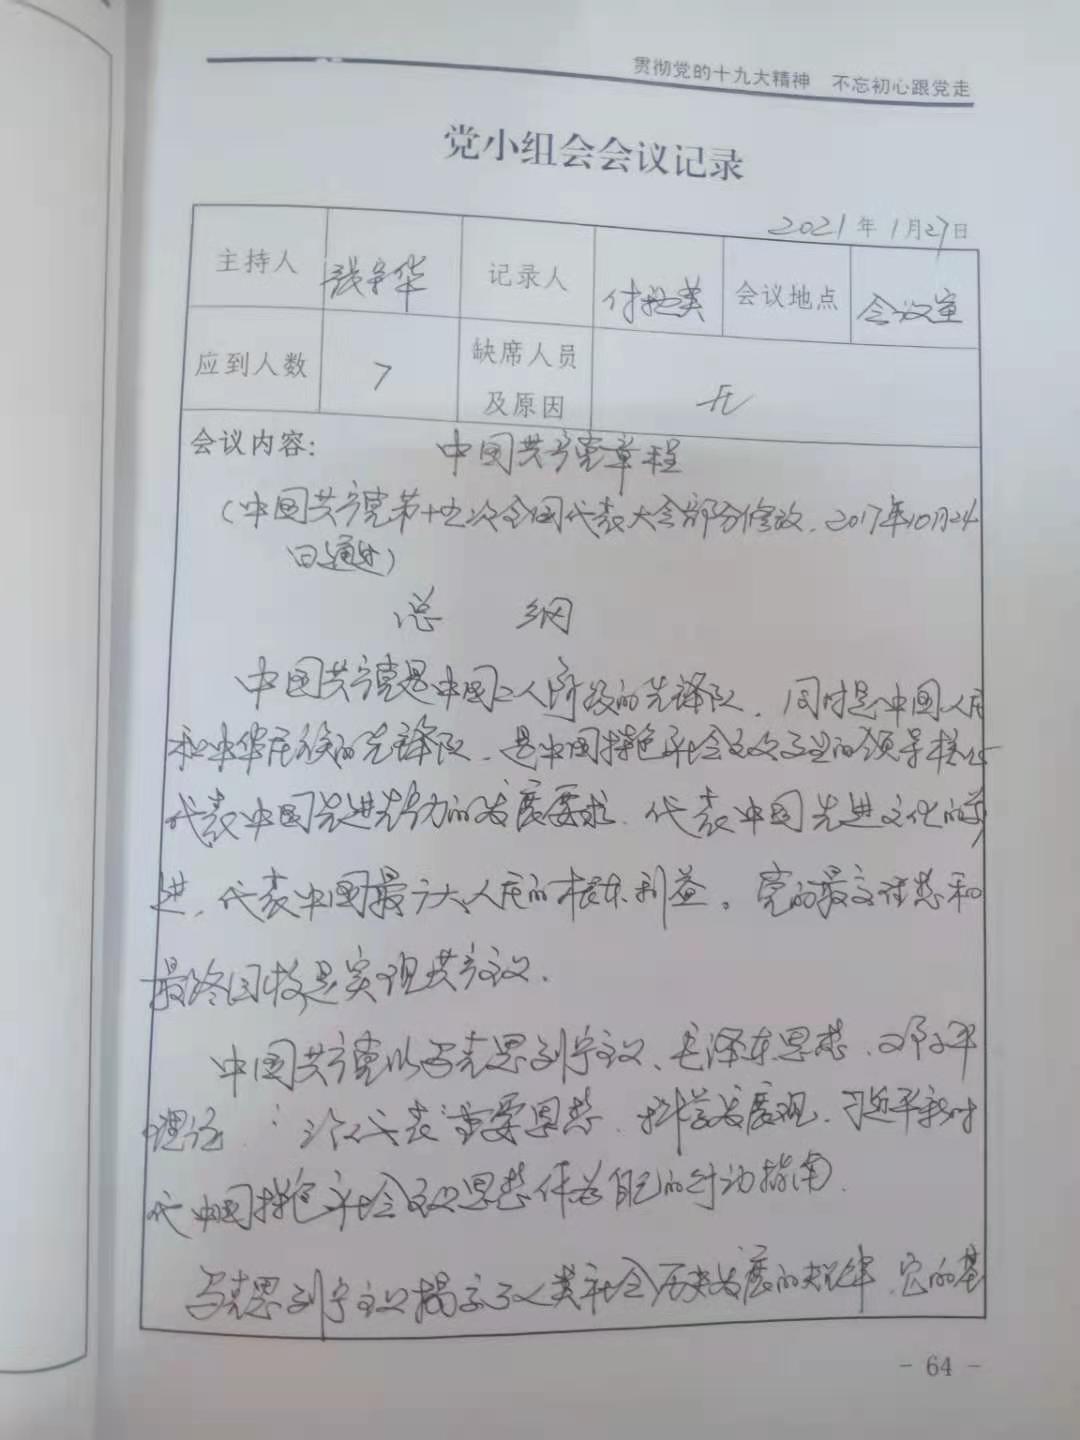 贯彻党的十九大精神 不忘初心跟党走
党小组会会议记录
2021年1月27日
主持人 华 记录人 付 英 会议地点 会议室
应到人数 7 缺席人员及原因 无
会议内容: 中国共产党章程
(中国共产党第十九次全国代表大会部分修改,2017年10月24
日通过)
总 纲
中国共产党是中国工人阶级的先锋队,同时是中国人民
和中华民族的先锋队,是中国特色社会主义事业的领导核心
代表中国先进生产力的发展要求,代表中国先进文化的前
进,代表中国最广大人民的根本利益。党的最高理想和
最终目标是实现共产主义.
中国共产党以马克思列宁主义、毛泽东思想、邓小平
理论、三个代表重要思想、科学发展观、习近平新时
代中国特色社会主义思想作为自己的行动指南.
马克思列宁主义揭示了人类社会历史发展的规律,它的基
- 64 -